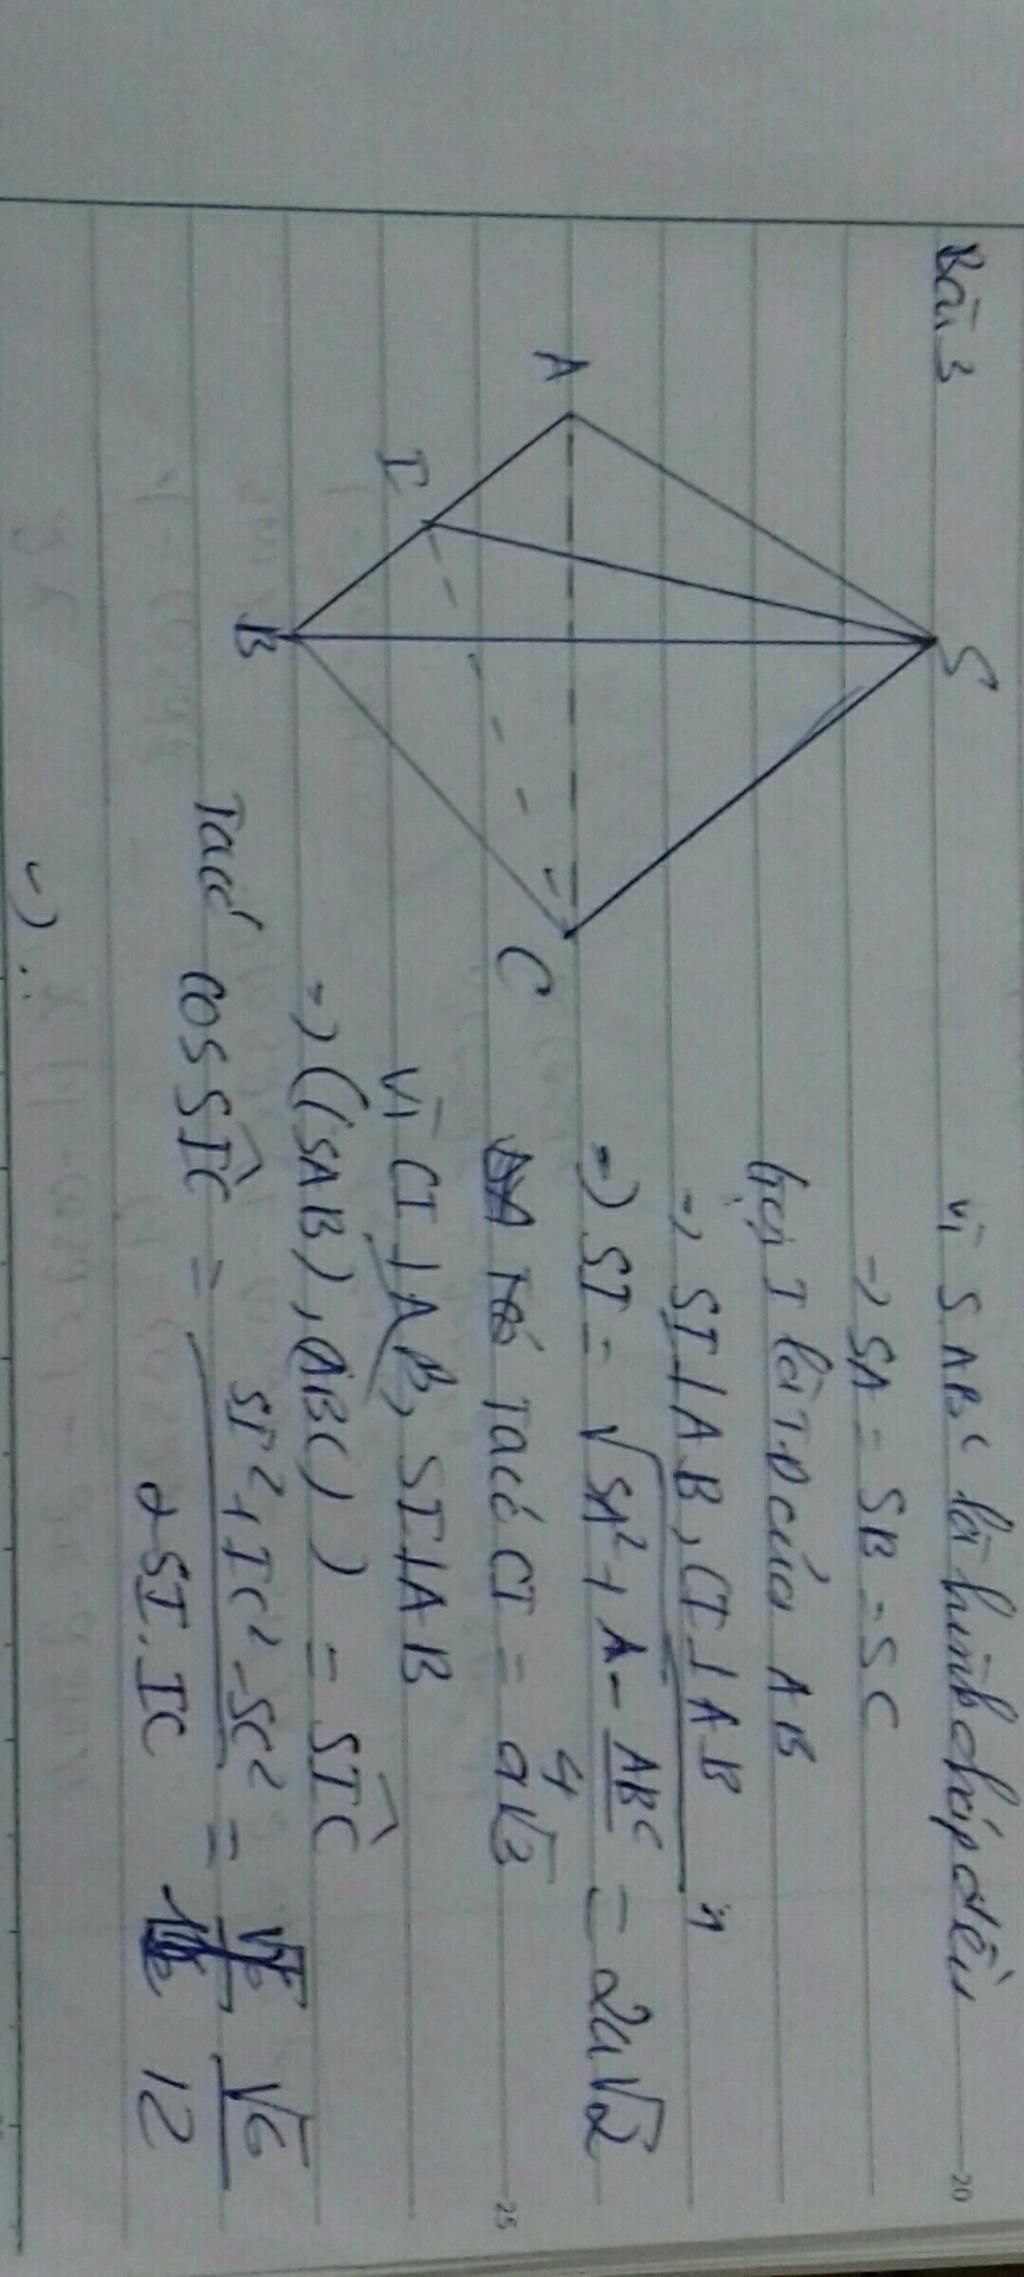 Bài 3
S
A
I
B
C
Vì SABC là hình chóp đều
=) SA = SB = SC
Gọi I là T.D của AB
=) SI ⊥ AB, CI ⊥ AB
=) SI = √SA² + A - ABC/4 = 2a√2
Ta có CI = a√3
Vì CI ⊥ AB, SI ⊥ AB
=) ((SAB), ABC)) = SIC
Ta có cos SIC = SI² + IC² - SC² / 2 SI. IC = √6/12
20
25